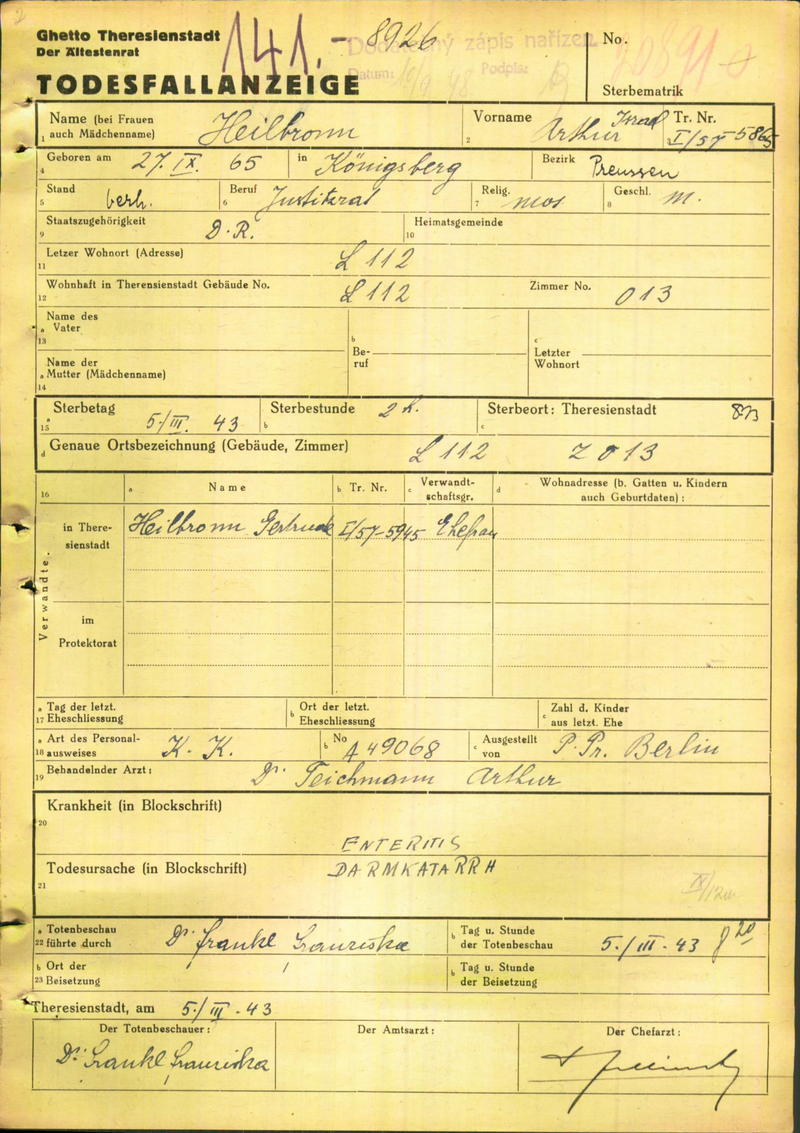 Ghetto Theresienstadt
Der Ältestenrat
TODESFALLANZEIGE
141.- 8926
Dodatečný zápis nařízen
Datum: Podpis:
No.
Sterbematrik
Name (bei Frauen auch Mädchenname) Heilbronn
1
Vorname Arthur Israel
2
Tr. Nr. I/57-5865
Geboren am 27. IX. 65 in Königsberg Bezirk Preussen
4
Stand verh. Beruf Justizrat Relig. mos Geschl. m.
5 6 7 8
Staatszugehörigkeit D.R. Heimatsgemeinde
9 10
Letzer Wohnort (Adresse) L 112
11
Wohnhaft in Theresienstadt Gebäude No. L 112 Zimmer No. 013
12
Name des
a Vater
13
Name der
a Mutter (Mädchenname)
14
b
Be-
ruf
c
Letzter
Wohnort
Sterbetag 5/III. 43 Sterbestunde 2 h. Sterbeort: Theresienstadt
a 15 b c
d Genaue Ortsbezeichnung (Gebäude, Zimmer) L 112 Z 013
16 a Name b Tr. Nr. c Verwandt-
schaftsgr. d Wohnadresse (b. Gatten u. Kindern
auch Geburtdaten):
Verwandte
in There-
sienstadt
Heilbronn Gertrude I/57-5945 Ehefrau
im
Protektorat
a Tag der letzt.
17 Eheschliessung
b Ort der letzt.
Eheschliessung
c Zahl d. Kinder
aus letzt. Ehe
a Art des Personal-
18 ausweises K. K.
b No A 49068
c Ausgestellt
von P. Pr. Berlin
Behandelnder Arzt: Dr. Teichmann Arthur
19
Krankheit (in Blockschrift)
20
ENTERITIS
Todesursache (in Blockschrift) DARMKATARRH
21
a Totenbeschau
22 führte durch Dr. Frankl Franziska
b Tag u. Stunde
der Totenbeschau 5./III. 43 8 20
b Ort der
23 Beisetzung
b Tag u. Stunde
der Beisetzung
Theresienstadt, am 5./III. 43
Der Totenbeschauer: Der Amtsarzt: Der Chefarzt:
Dr. Frankl Franziska